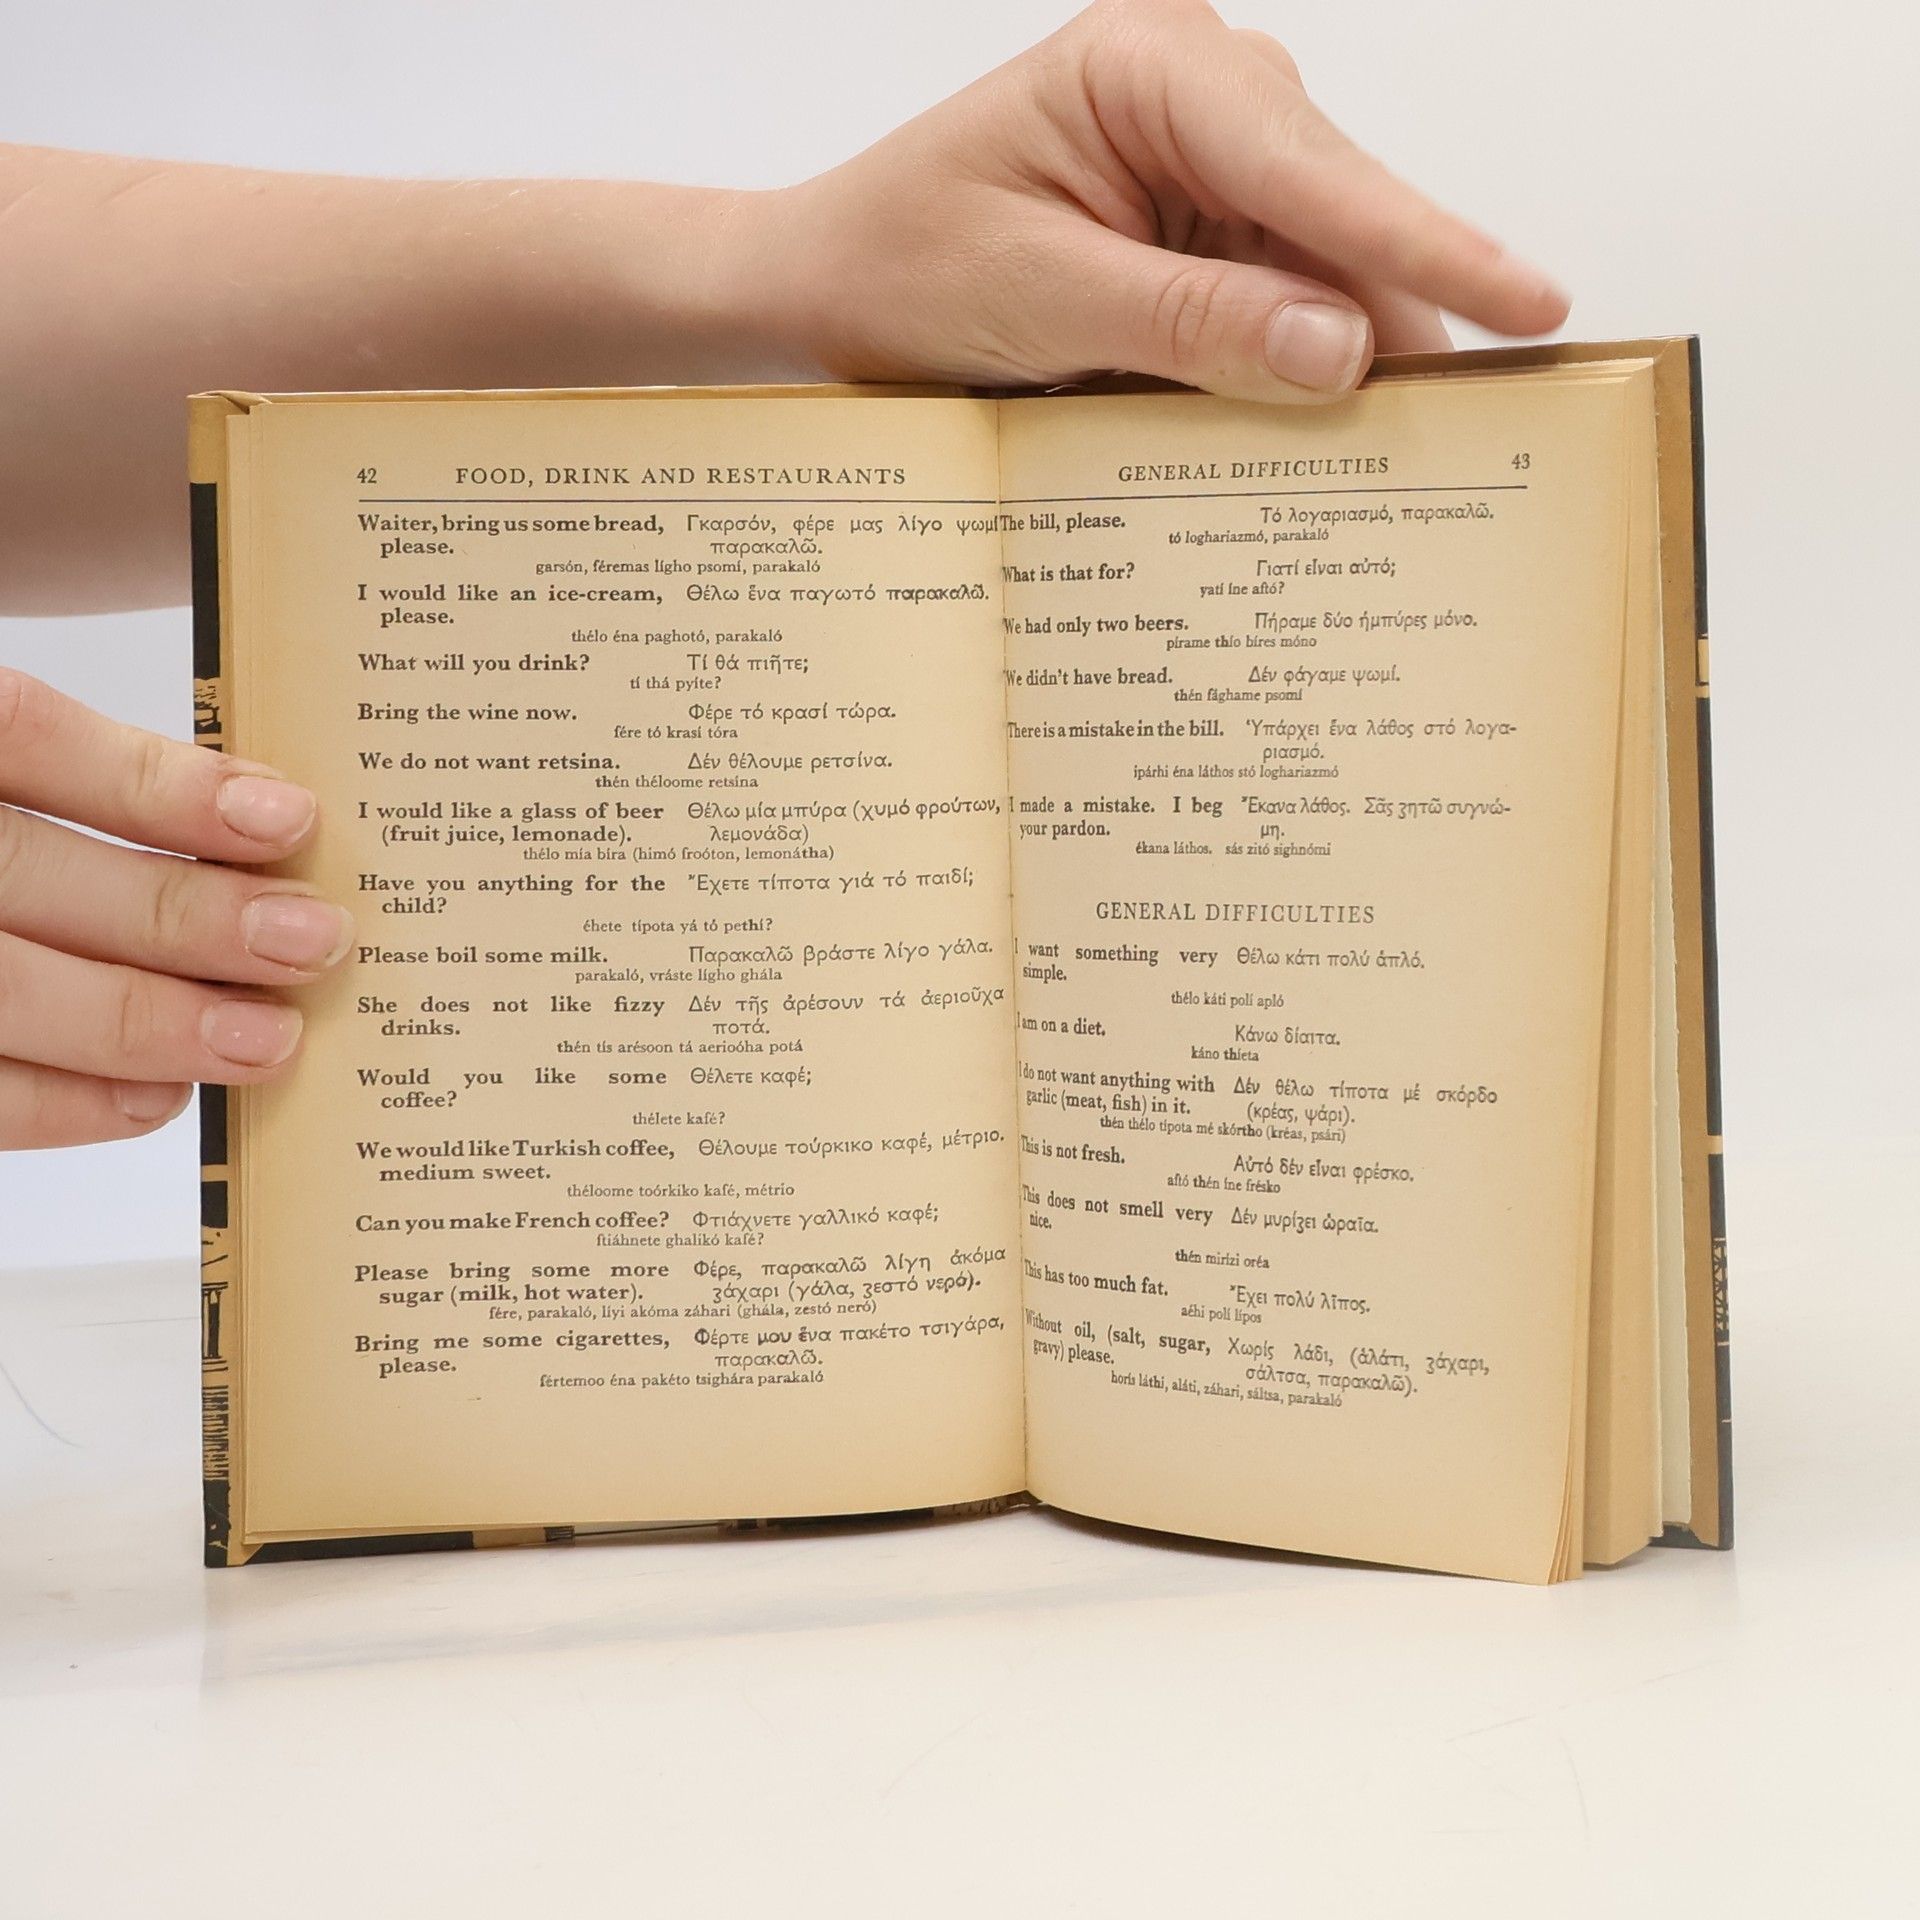 42 FOOD, DRINK AND RESTAURANTS
Waiter, bring us some bread, Γκαρσόν, φέρε μας λίγο ψωμί
please. παρακαλῶ.
garsón, féremas lígho psomí, parakaló
I would like an ice-cream, Θέλω ἕνα παγωτό παρακαλῶ.
please.
thélo éna paghotó, parakaló
What will you drink? Τί θά πιῆτε;
tí thá pyíte?
Bring the wine now. Φέρε τό κρασί τώρα.
fére tó krasí tóra
We do not want retsina. Δέν θέλουμε ρετσίνα.
thén théloome retsína
I would like a glass of beer Θέλω μία μπύρα (χυμό φρούτων,
(fruit juice, lemonade). λεμονάδα)
thélo mía bíra (himó froóton, lemonátha)
Have you anything for the Ἔχετε τίποτα γιά τό παιδί;
child?
éhete típota yá tó pethí?
Please boil some milk. Παρακαλῶ βράστε λίγο γάλα.
parakaló, vráste lígho ghála
She does not like fizzy Δέν τῆς ἀρέσουν τά ἀεριοῦχα
drinks. ποτά.
thén tís arésoon tá aerioóha potá
Would you like some Θέλετε καφέ;
coffee?
thélete kafé?
We would like Turkish coffee, Θέλουμε τούρκικο καφέ, μέτριο.
medium sweet.
théloome toórkiko kafé, métrio
Can you make French coffee? Φτιάχνετε γαλλικό καφέ;
ftiáhnete ghalikó kafé?
Please bring some more Φέρε, παρακαλῶ λίγη ἀκόμα
sugar (milk, hot water). ζάχαρι (γάλα, ζεστό νερό).
fére, parakaló, líyi akóma záhari (ghála, zestó neró)
Bring me some cigarettes, Φέρτε μου ἕνα πακέτο τσιγάρα,
please. παρακαλῶ.
fértemoo éna pakéto tsighára parakaló
GENERAL DIFFICULTIES 43
The bill, please. Τό λογαριασμό, παρακαλῶ.
tó loghariazmó, parakaló
What is that for? Γιατί εἶναι αὐτό;
yatí íne aftó?
We had only two beers. Πήραμε δύο ἡμπύρες μόνο.
pírame thío bíres móno
We didn't have bread. Δέν φάγαμε ψωμί.
thén fághame psomí
There is a mistake in the bill. Ὑπάρχει ἕνα λάθος στό λογα-
ριασμό.
ipárhi éna láthos stó loghariazmó
I made a mistake. I beg Ἔκανα λάθος. Σᾶς ζητῶ συγνώ-
your pardon. μη.
ékana láthos. sás zitó sighnómi
GENERAL DIFFICULTIES
I want something very Θέλω κάτι πολύ ἁπλό.
simple.
thélo káti polí apló
I am on a diet. Κάνω δίαιτα.
káno thíeta
I do not want anything with Δέν θέλω τίποτα μέ σκόρδο
garlic (meat, fish) in it. (κρέας, ψάρι).
thén thélo típota mé skórtho (kréas, psári)
This is not fresh. Αὐτό δέν εἶναι φρέσκο.
aftó thén íne frésko
This does not smell very Δέν μυρίζει ὡραῖα.
nice.
thén mirízi oréa
This has too much fat. Ἔχει πολύ λῖπος.
aéhi polí lípos
Without oil, (salt, sugar, Χωρίς λάδι, (ἁλάτι, ζάχαρι,
gravy) please. σάλτσα, παρακαλῶ).
horís láthi, aláti, záhari, sáltsa, parakaló